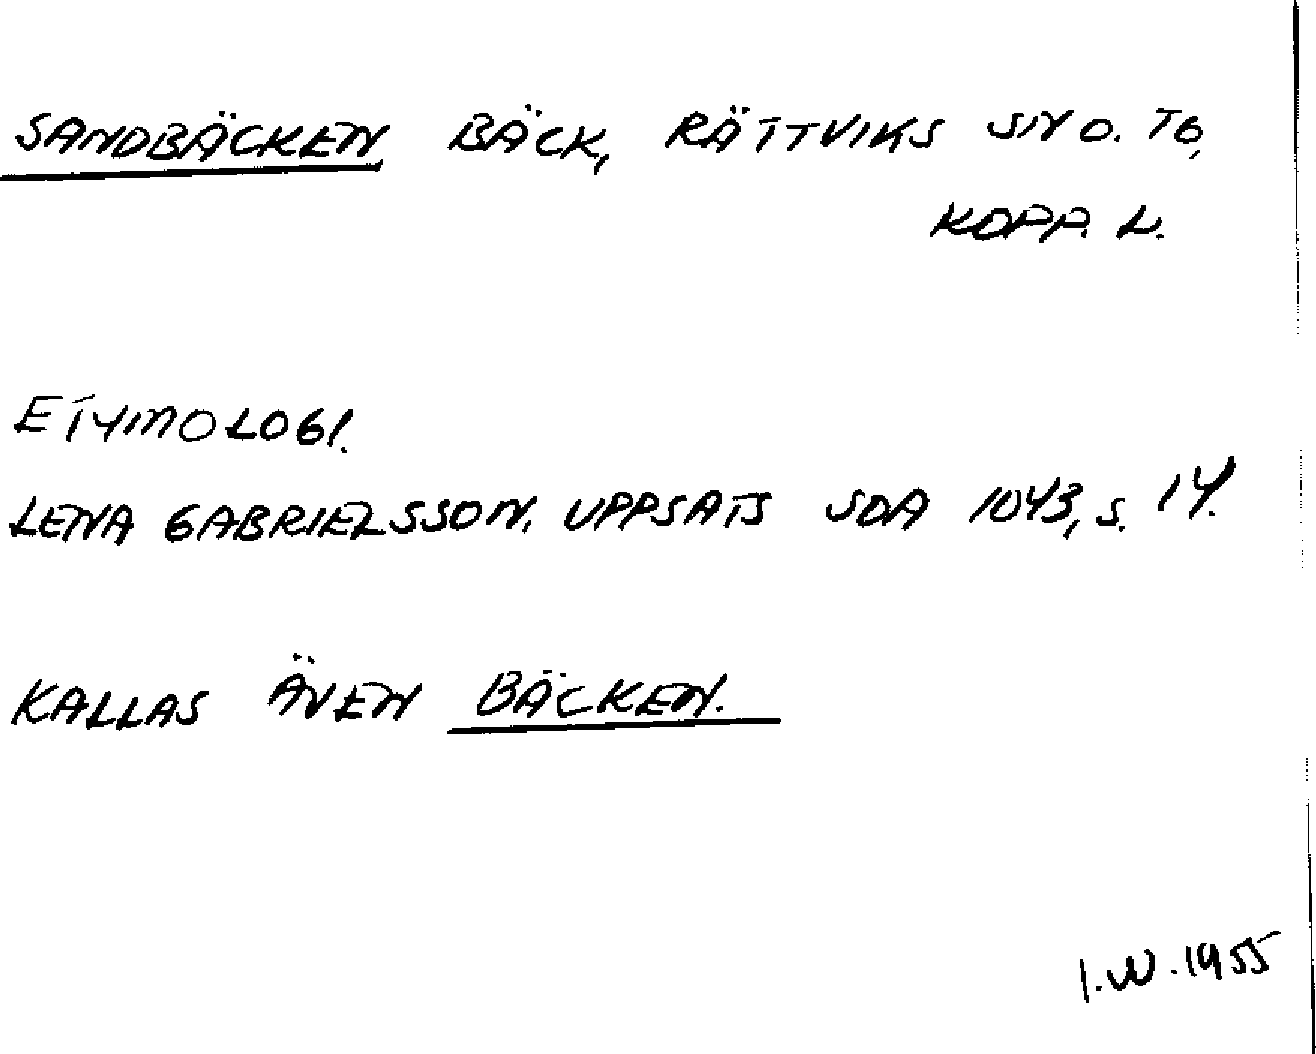 SANDBÄCKEN, BÄCK, RÄTTVIKS SN O. TG,
KOPP. L.
ETYMOLOGI.
LENA GABRIELSSON, UPPSATS SDA 1043, S. 14.
KALLAS ÄVEN BÄCKEN.
I.W. 1955